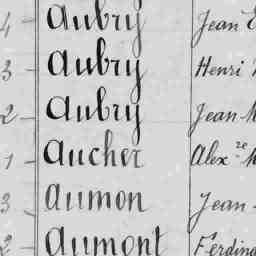 4 - Aubry Jean
3 - Aubry Henri
2 - Aubry Jean
1 - Aucher Alex.re
3 - Aumon Jean
2 - Aumont Ferdin